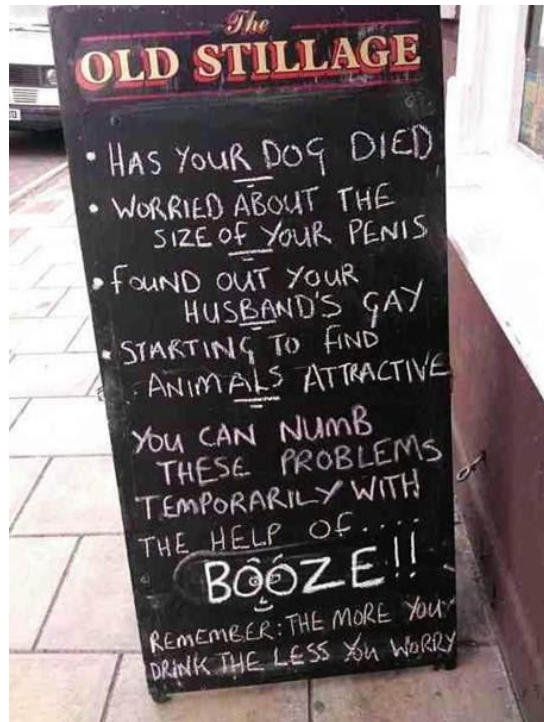 The
OLD STILLAGE
• HAS YOUR DOG DIED
• WORRIED ABOUT THE
SIZE OF YOUR PENIS
• FOUND OUT YOUR
HUSBAND'S GAY
• STARTING TO FIND
ANIMALS ATTRACTIVE
YOU CAN NUMB
THESE PROBLEMS
TEMPORARILY WITH
THE HELP OF....
BOOZE!!
REMEMBER: THE MORE YOU
DRINK THE LESS YOU WORRY